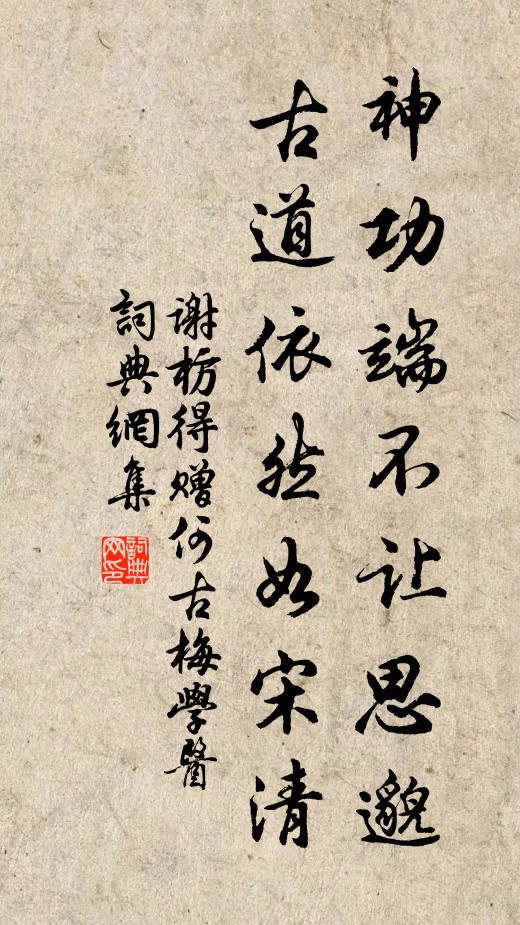 神功端不让思邈
古道依然如宋清
谢枋得赠何古梅學醫
詞典網集
詞典网印